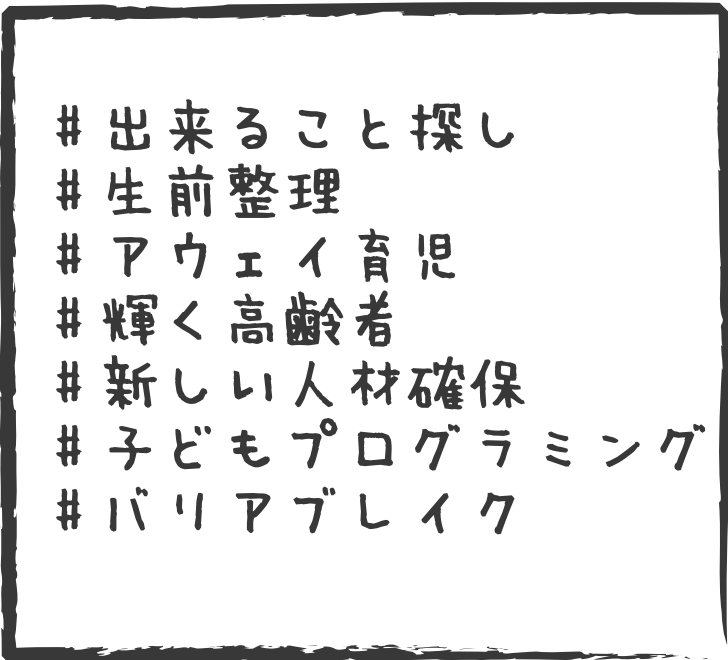 # 出来ること探し
# 生前整理
# アウェイ育児
# 輝く高齢者
# 新しい人材確保
# 子どもプログラミング
# バリアブレイク